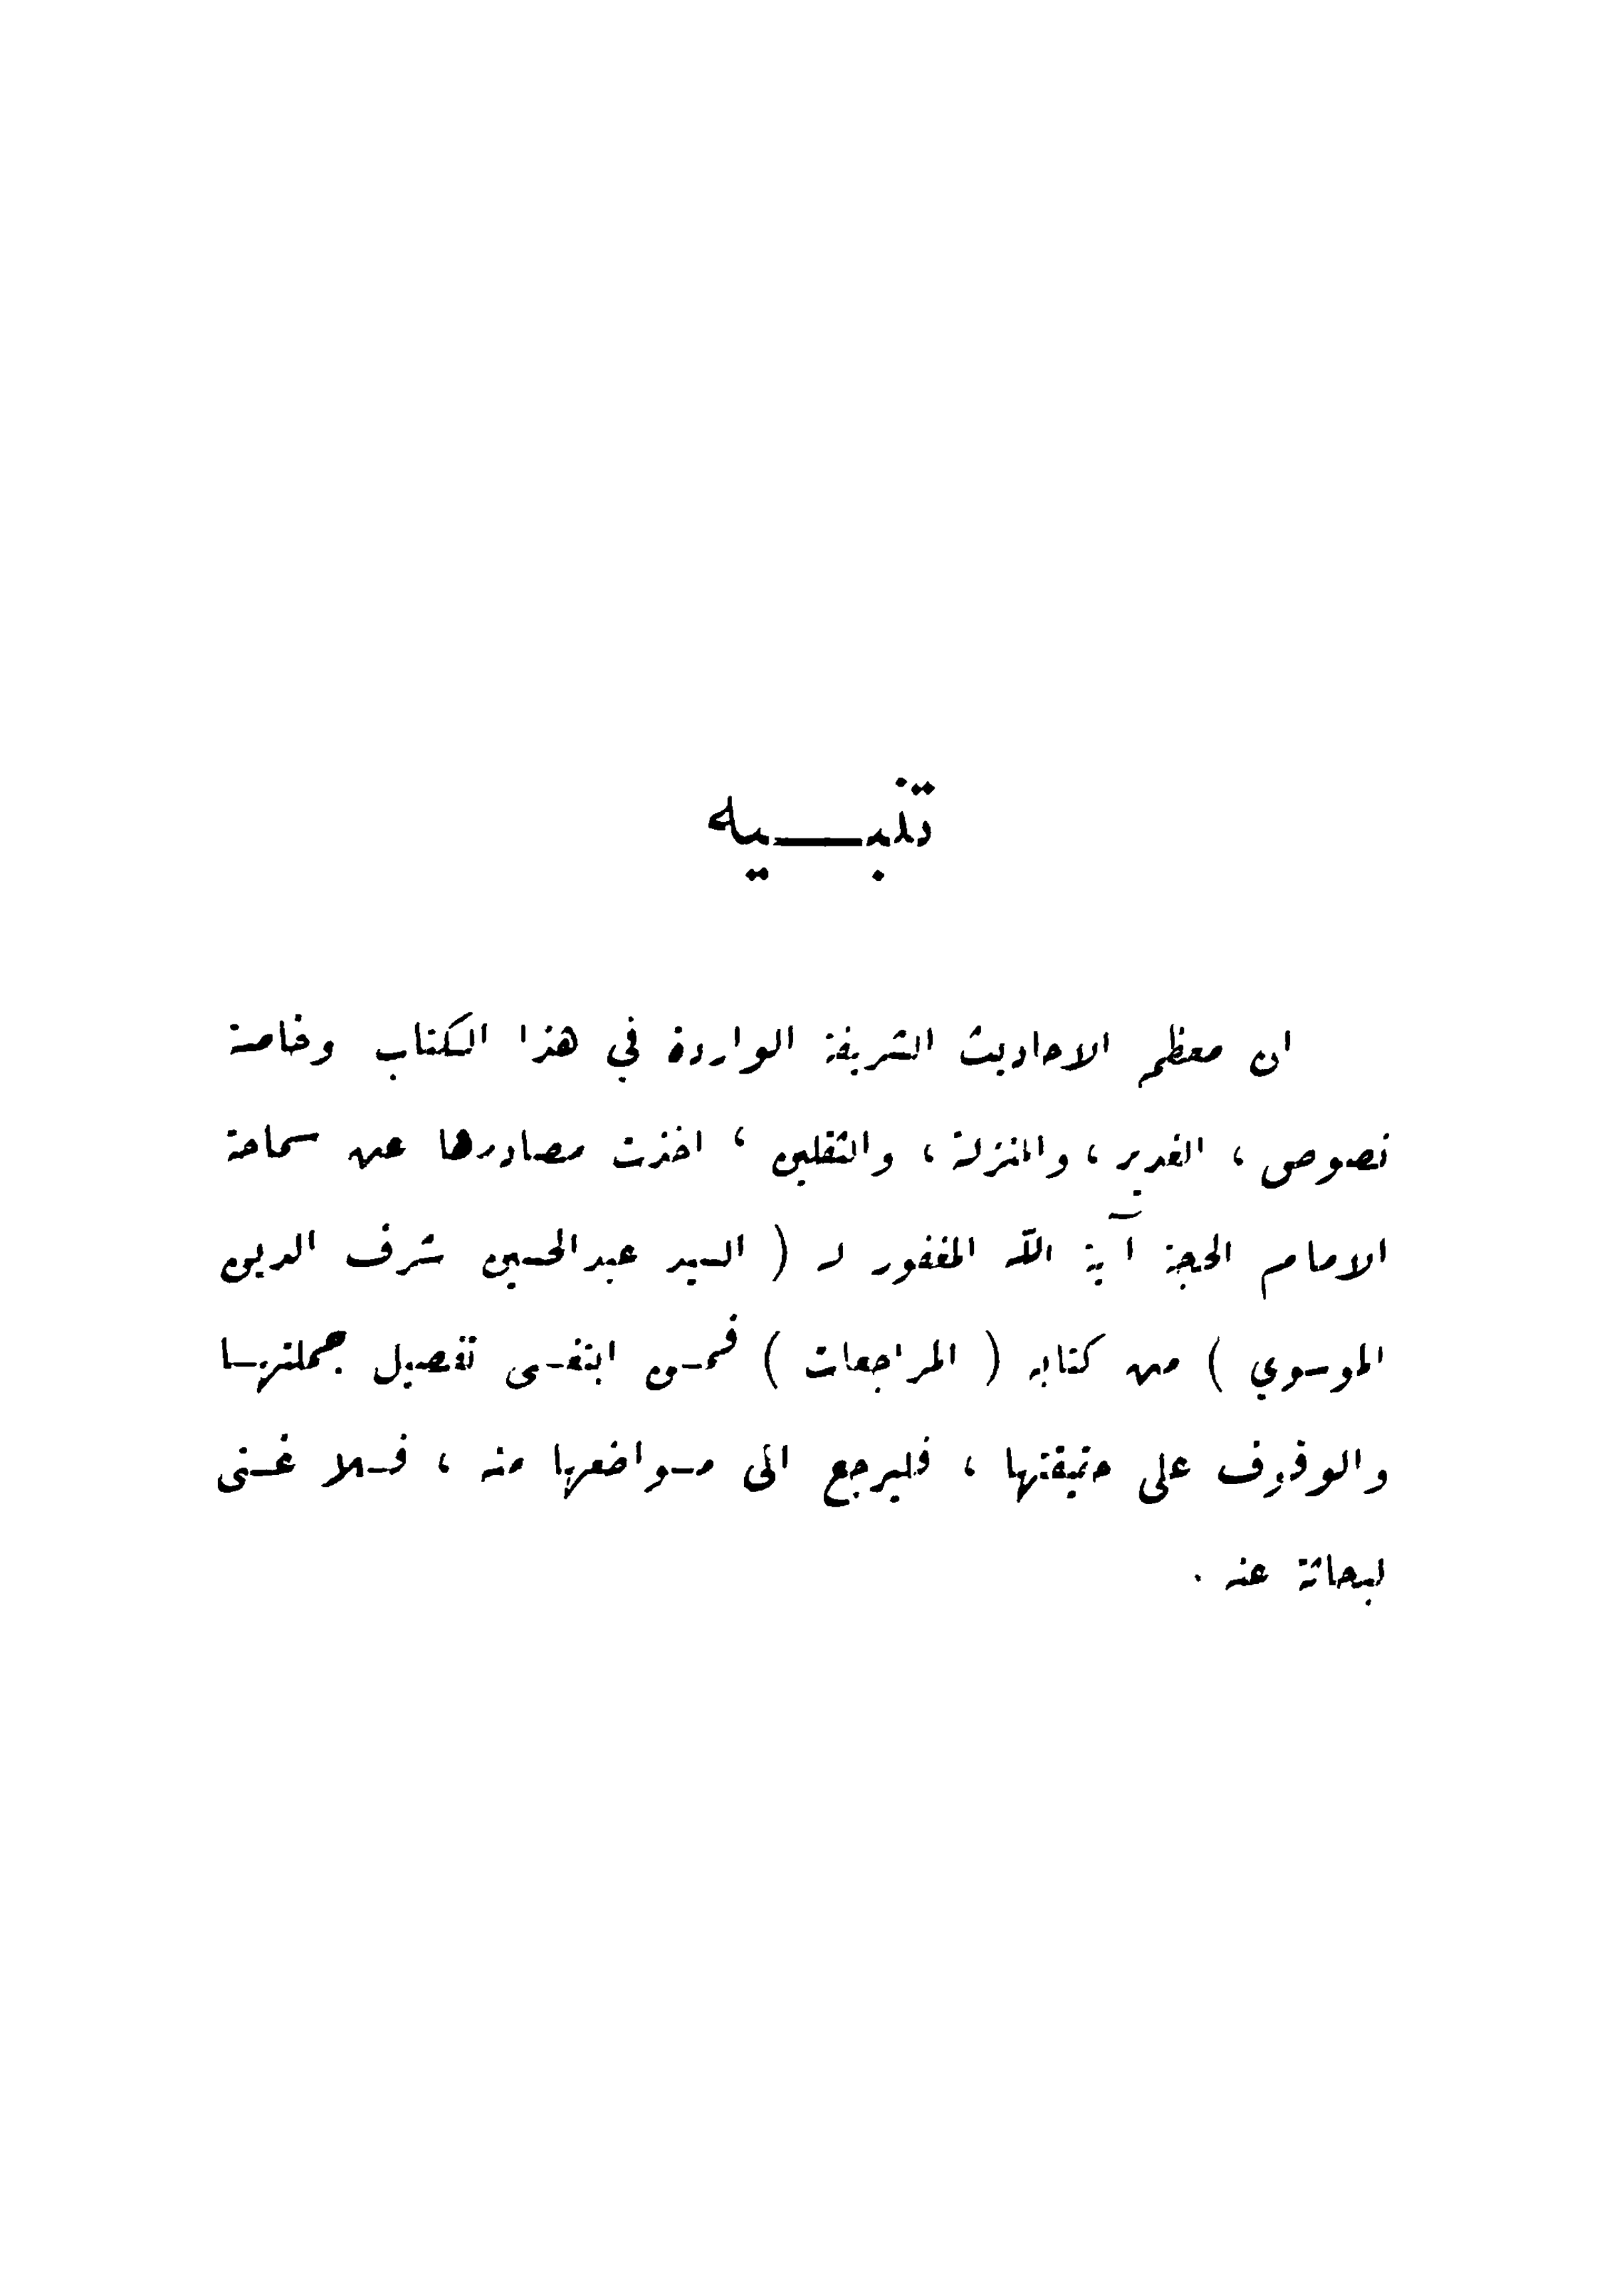 تنبيه
ان معظم الاحاديث الشريفة الواردة في هذا الكتاب وخاصة
نصوص ، الغدير ، والمنزلة ، والثقلين ، اخذت مصادرها عن سماحة
الامام الحجة آية الله المغفور له ( السيد عبدالحسين شرف الدين
الموسوي ) من كتابه ( المراجعات ) فمن ابتغى تفصيل جملتها
والوقوف على حقيقتها ، فليرجع الى مواضعها منه ، فلا غنى
لبحاثة عنه .